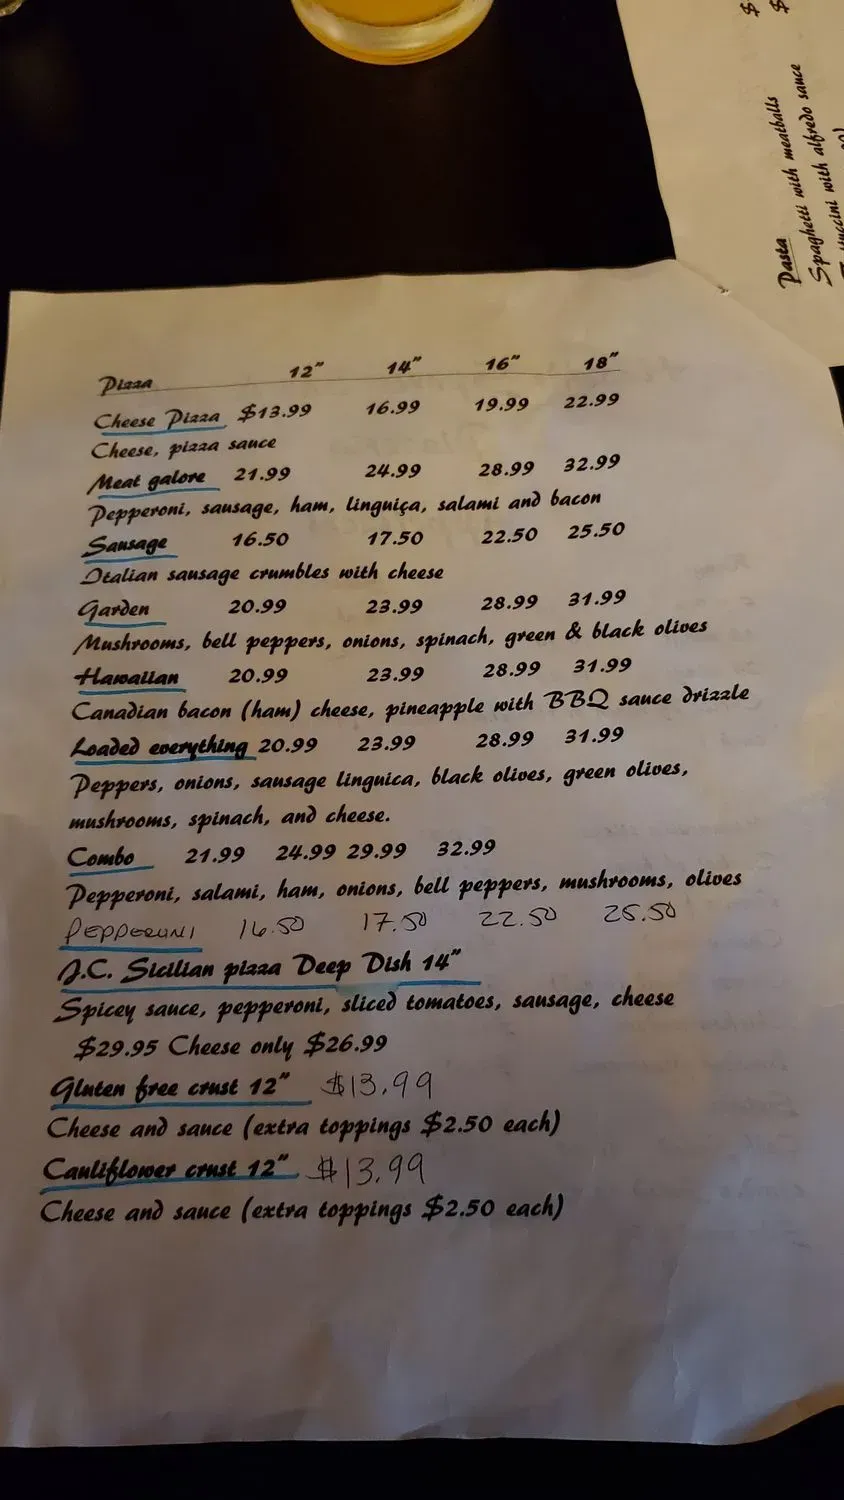 Pizza 12" 14" 16" 18"
Cheese Pizza $13.99 16.99 19.99 22.99
Cheese, pizza sauce
Meat galore 21.99 24.99 28.99 32.99
Pepperoni, sausage, ham, linguiça, salami and bacon
Sausage 16.50 17.50 22.50 25.50
Italian sausage crumbles with cheese
Garden 20.99 23.99 28.99 31.99
Mushrooms, bell peppers, onions, spinach, green & black olives
Hawaiian 20.99 23.99 28.99 31.99
Canadian bacon (ham) cheese, pineapple with BBQ sauce drizzle
Loaded everything 20.99 23.99 28.99 31.99
Peppers, onions, sausage linguica, black olives, green olives,
mushrooms, spinach, and cheese.
Combo 21.99 24.99 29.99 32.99
Pepperoni, salami, ham, onions, bell peppers, mushrooms, olives
PEPPERONI 16.50 17.50 22.50 25.50
J.C. Sicilian pizza Deep Dish 14"
Spicey sauce, pepperoni, sliced tomatoes, sausage, cheese
$29.95 Cheese only $26.99
Gluten free crust 12" $13.99
Cheese and sauce (extra toppings $2.50 each)
Cauliflower crust 12" $13.99
Cheese and sauce (extra toppings $2.50 each)
Pasta
Spaghetti with meatballs $
Spaghetti with alfredo sauce $